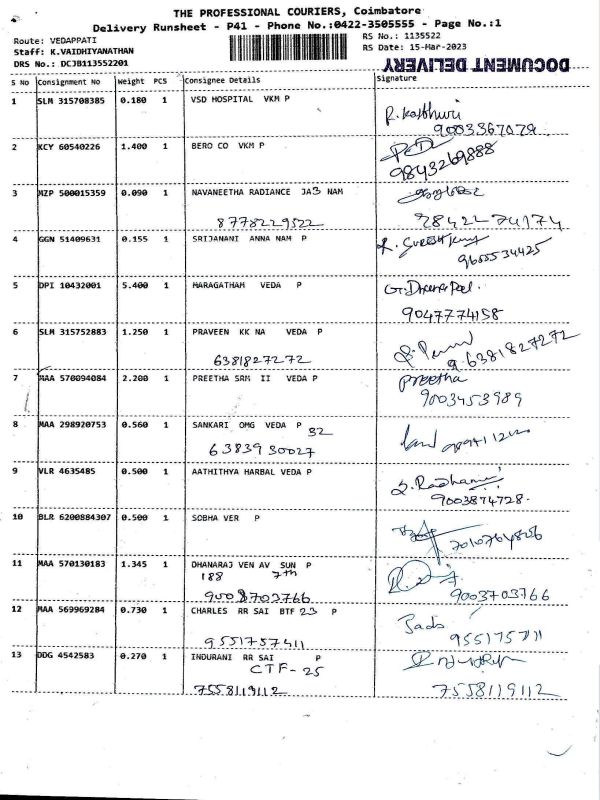 THE PROFESSIONAL COURIERS, Coimbatore
Delivery Runsheet - P41 - Phone No.:0422-3505555 - Page No.:1
Route: VEDAPPATI
RS No.: 1135522
Staff: K.VAIDHIYANATHAN
RS Date: 15-Mar-2023
DRS No.: DCJB113552201
DOCUMENT DELIVERY
S No Consignment No Weight PCS Consignee Details Signature
1 SLM 315708385 0.180 1 VSD HOSPITAL VKM P
9003367079
2 KCY 60540226 1.400 1 BERO CO VKM P
9843269888
3 MZP 500015359 0.090 1 NAVANEETHA RADIANCE JAB NAM
8778229522 9842274174
4 GGN 51409631 0.155 1 SRIJANANI ANNA NAM P
9655534425
5 DPI 10432001 5.400 1 MARAGATHAM VEDA P
9047774158
6 SLM 315752883 1.250 1 PRAVEEN KK NA VEDA P
6381827272 6381827272
7 MAA 570094084 2.200 1 PREETHA SRM II VEDA P Preetha
9003453989
8 MAA 298920753 0.560 1 SANKARI OMG VEDA P 32
6383930027
9 VLR 4635485 0.500 1 AATHITHYA HARBAL VEDA P
9003874728.
10 BLR 6200884307 0.500 1 SOBHA VER P
11 MAA 570130183 1.345 1 DHANARAJ VEN AV SUN P
188 7th
9003703766 9003703766
12 MAA 569969284 0.730 1 CHARLES RR SAI BTF 23 P
9551757411
13 DDG 4542583 0.270 1 INDURANI RR SAI P
CTF-25
7558119112 7558119112